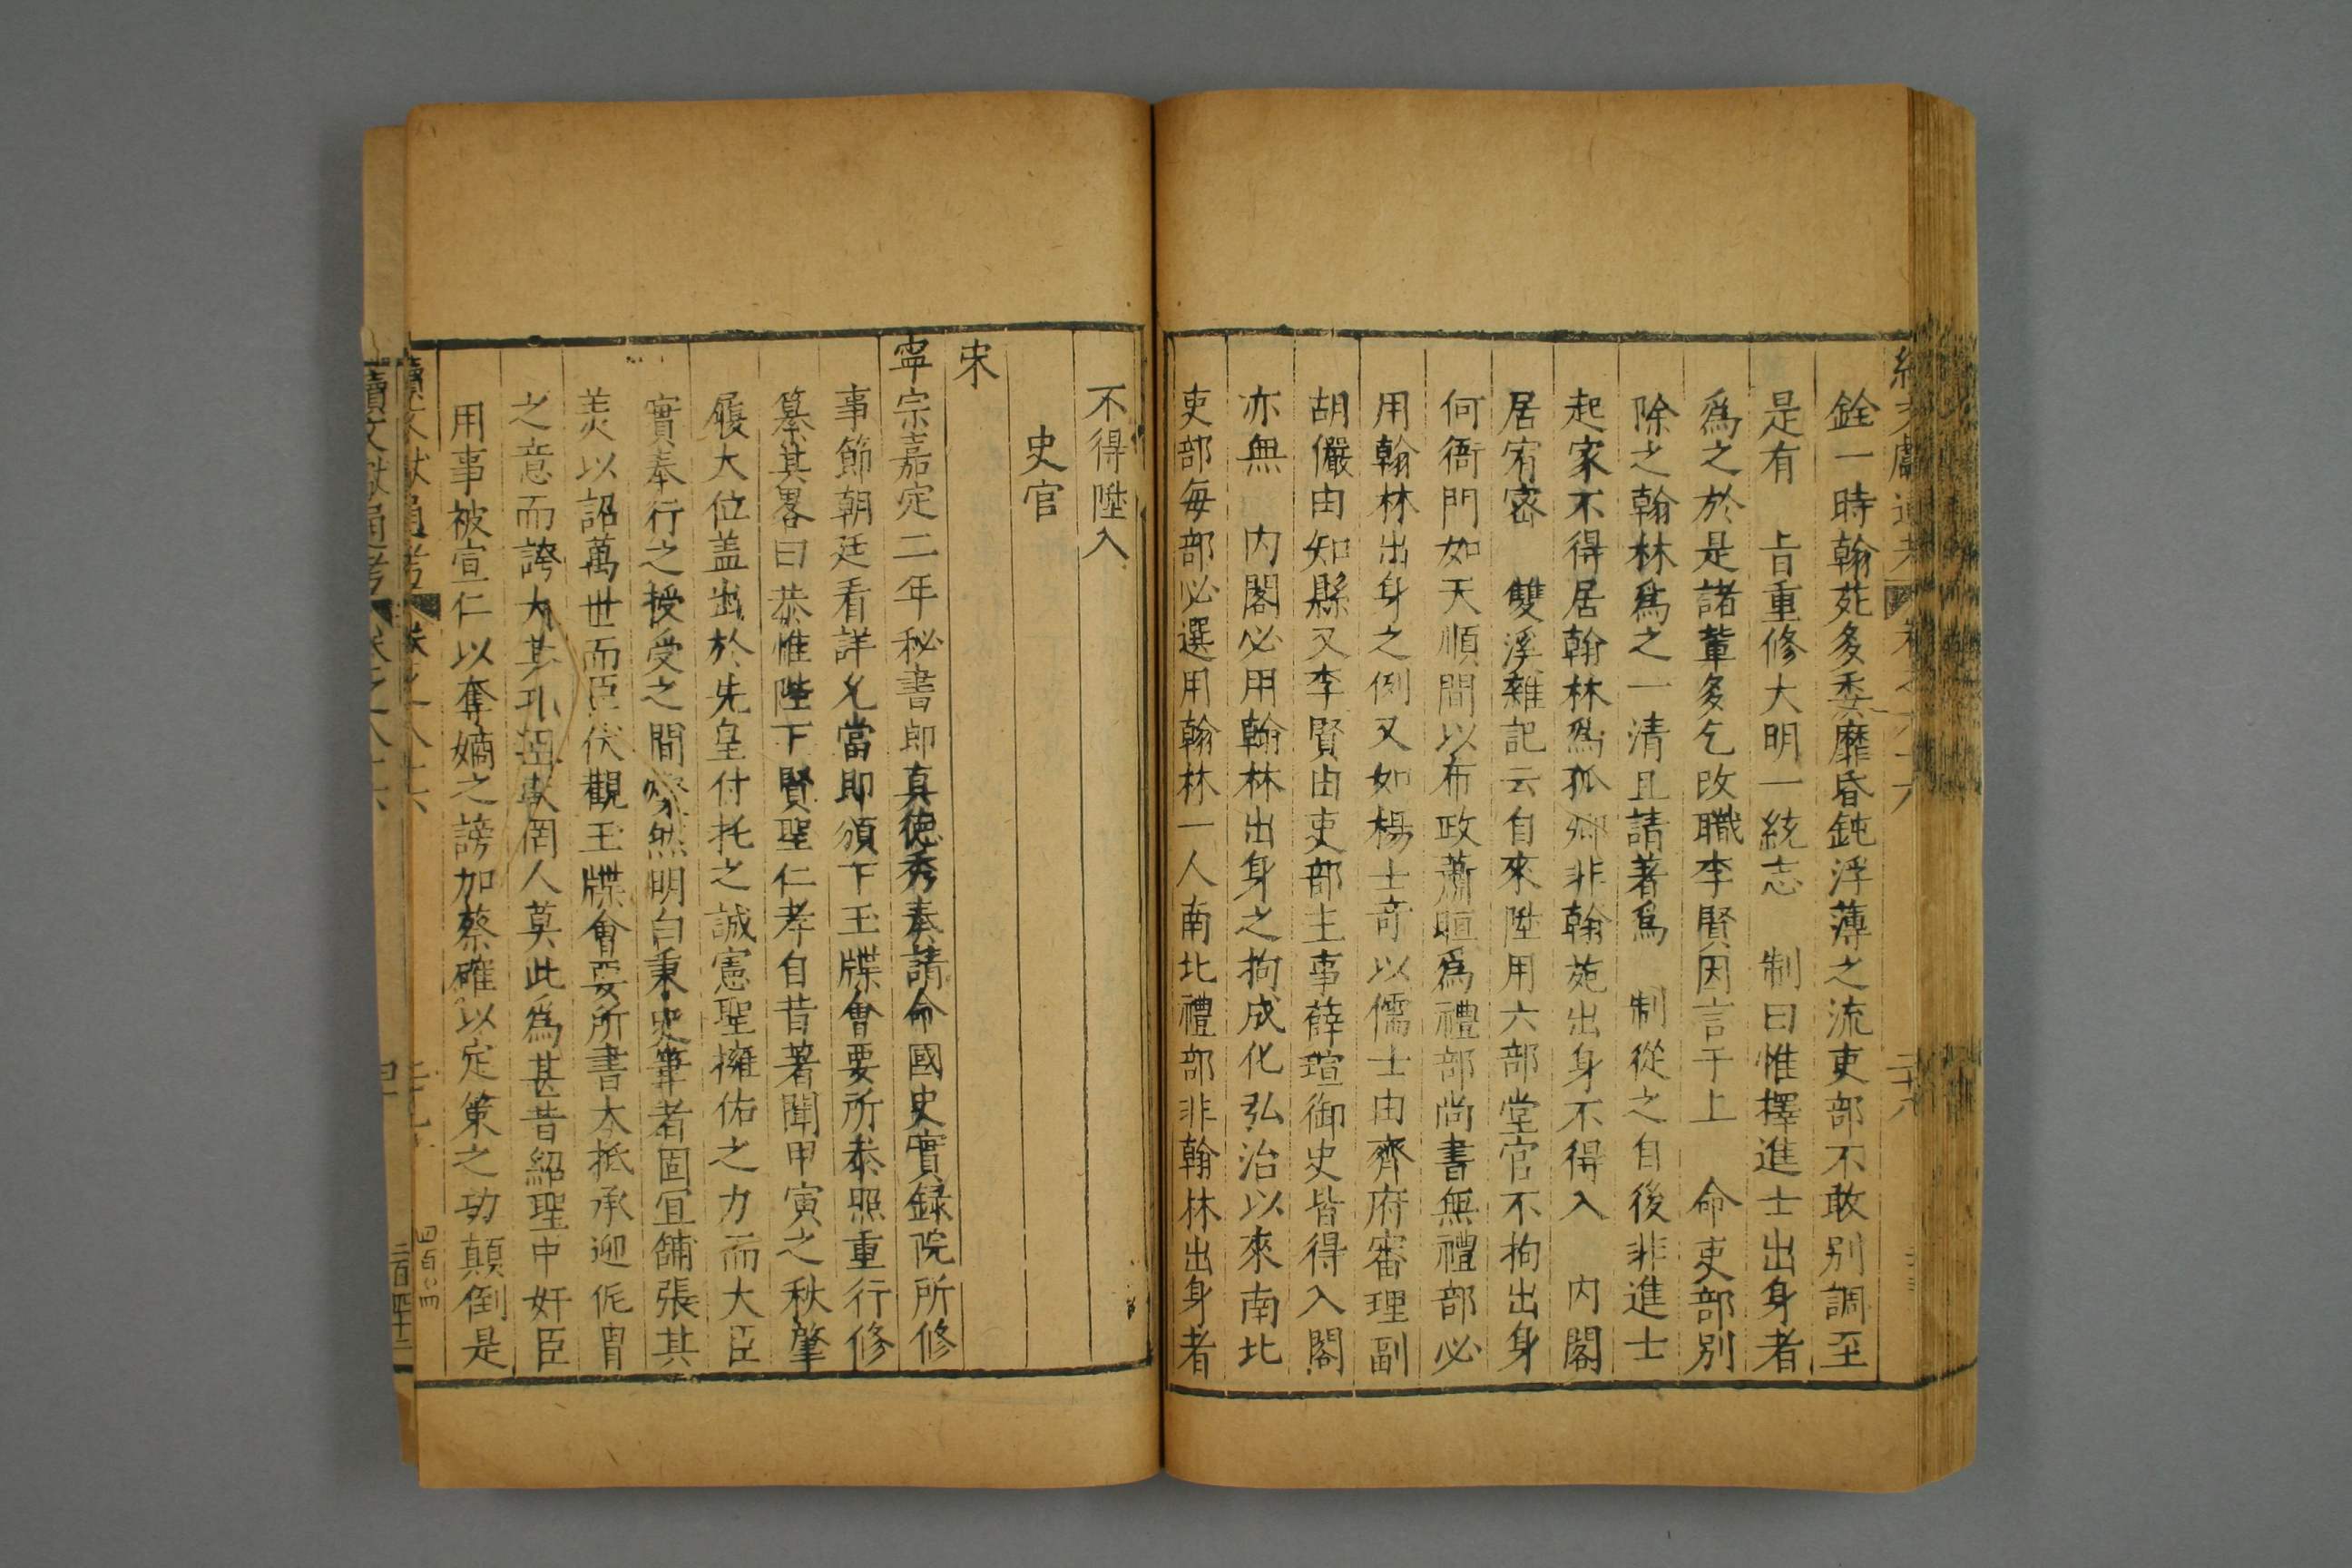 銓一時翰苑多委靡昏鈍浮薄之流吏部不敢別調至
是有 旨重修大明一統志 制曰惟擇進士出身者
爲之於是諸軰多乞改職李賢因言于上 命吏部別
除之翰林爲之一清且請著爲 制從之自後非進士
起家不得居翰林爲孤卿非翰苑出身不得入 內閣
居宥密 雙溪雜記云自來陞用六部堂官不拘出身
何衙門如天順間以布政蕭晅爲禮部尚書無禮部必
用翰林出身之例又如楊士竒以儒士由齊府審理副
胡儼由知縣又李賢由吏部主事薛瑄御史皆得入閣
亦無 內閣必用翰林出身之拘成化弘治以來南北
吏部每部必選用翰林一人南北禮部非翰林出身者
不得陞入
史官
宋
寧宗嘉定二年秘書郎真德秀奏請命國史實録院所修
事節朝廷看詳允當即頒下玉牒會要所叅照重行修
纂其畧曰恭惟陛下賢聖仁孝自昔著聞甲寅之秋肇
履大位盖出於先皇付托之誠憲聖擁佑之力而大臣
實奉行之授受之間粲然明白秉史筆者固宜鋪張其
美以詔萬世而臣伏觀玉牒會要所書大抵承迎侂冑
之意而誇大其功誣罔人莫此爲甚昔紹聖中奸臣
用事被宣仁以奪嫡之謗加蔡確以定策之功顛倒是
續文獻通考 卷之八十六
四百八四
續文獻通考
二百四十二